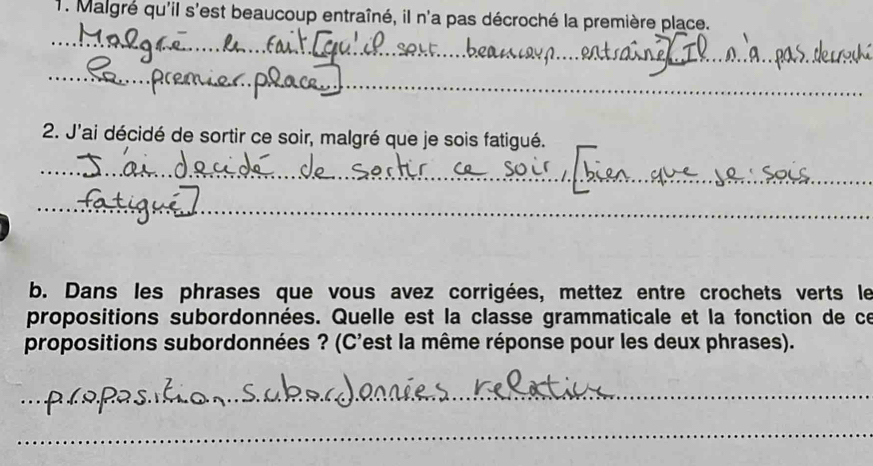 1. Malgré qu'il s'est beaucoup entraîné, il n'a pas décroché la première place.
Malgré le fait [qu'il soit beaucoup entraîné] Il n'a pas decroché
la premier place]
2. J'ai décidé de sortir ce soir, malgré que je sois fatigué.
J'ai decidé de sortir ce soir, [bien que je sois
fatigué]
b. Dans les phrases que vous avez corrigées, mettez entre crochets verts le
propositions subordonnées. Quelle est la classe grammaticale et la fonction de ce
propositions subordonnées ? (C'est la même réponse pour les deux phrases).
proposition subordonnies relative